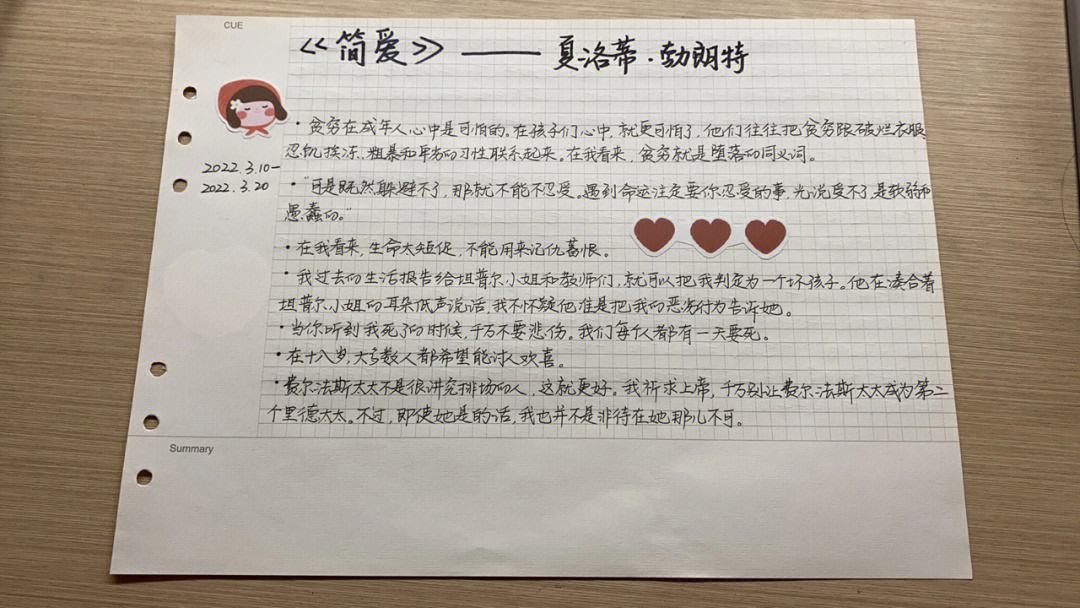 CUE
《简爱》——夏洛蒂·勃朗特
2022.3.10-
2022.3.20
·贫穷在成年人心中是可怕的。在孩子们心中,就更可怕了,他们往往把贫穷跟破烂衣服
忍饥挨冻、粗暴和卑劣的习性联系起来。在我看来,贫穷就是堕落的同义词。
·"可是既然躲避不了,那就不能不忍受。遇到命运注定要你忍受的事,光说受不了,是软弱和
愚蠢的。"
·在我看来,生命太短促,不能用来记仇蓄恨。
·我过去的生活报告给坦普尔小姐和教师们,就可以把我判定为一个坏孩子。他在凑合着
坦普尔小姐的耳朵低声说话,我不怀疑他准是把我的恶劣行为告诉她。
·当你听到我死了的时候,千万不要悲伤。我们每个人都有一天要死。
·在十八岁,大多数人都希望能讨人欢喜。
·费尔法斯太太不是很讲究排场的人,这就更好。我祈求上帝,千万别让费尔法斯太太成为第二
个里德太太。不过,即使她是的话,我也并不是非待在她那儿不可。
Summary